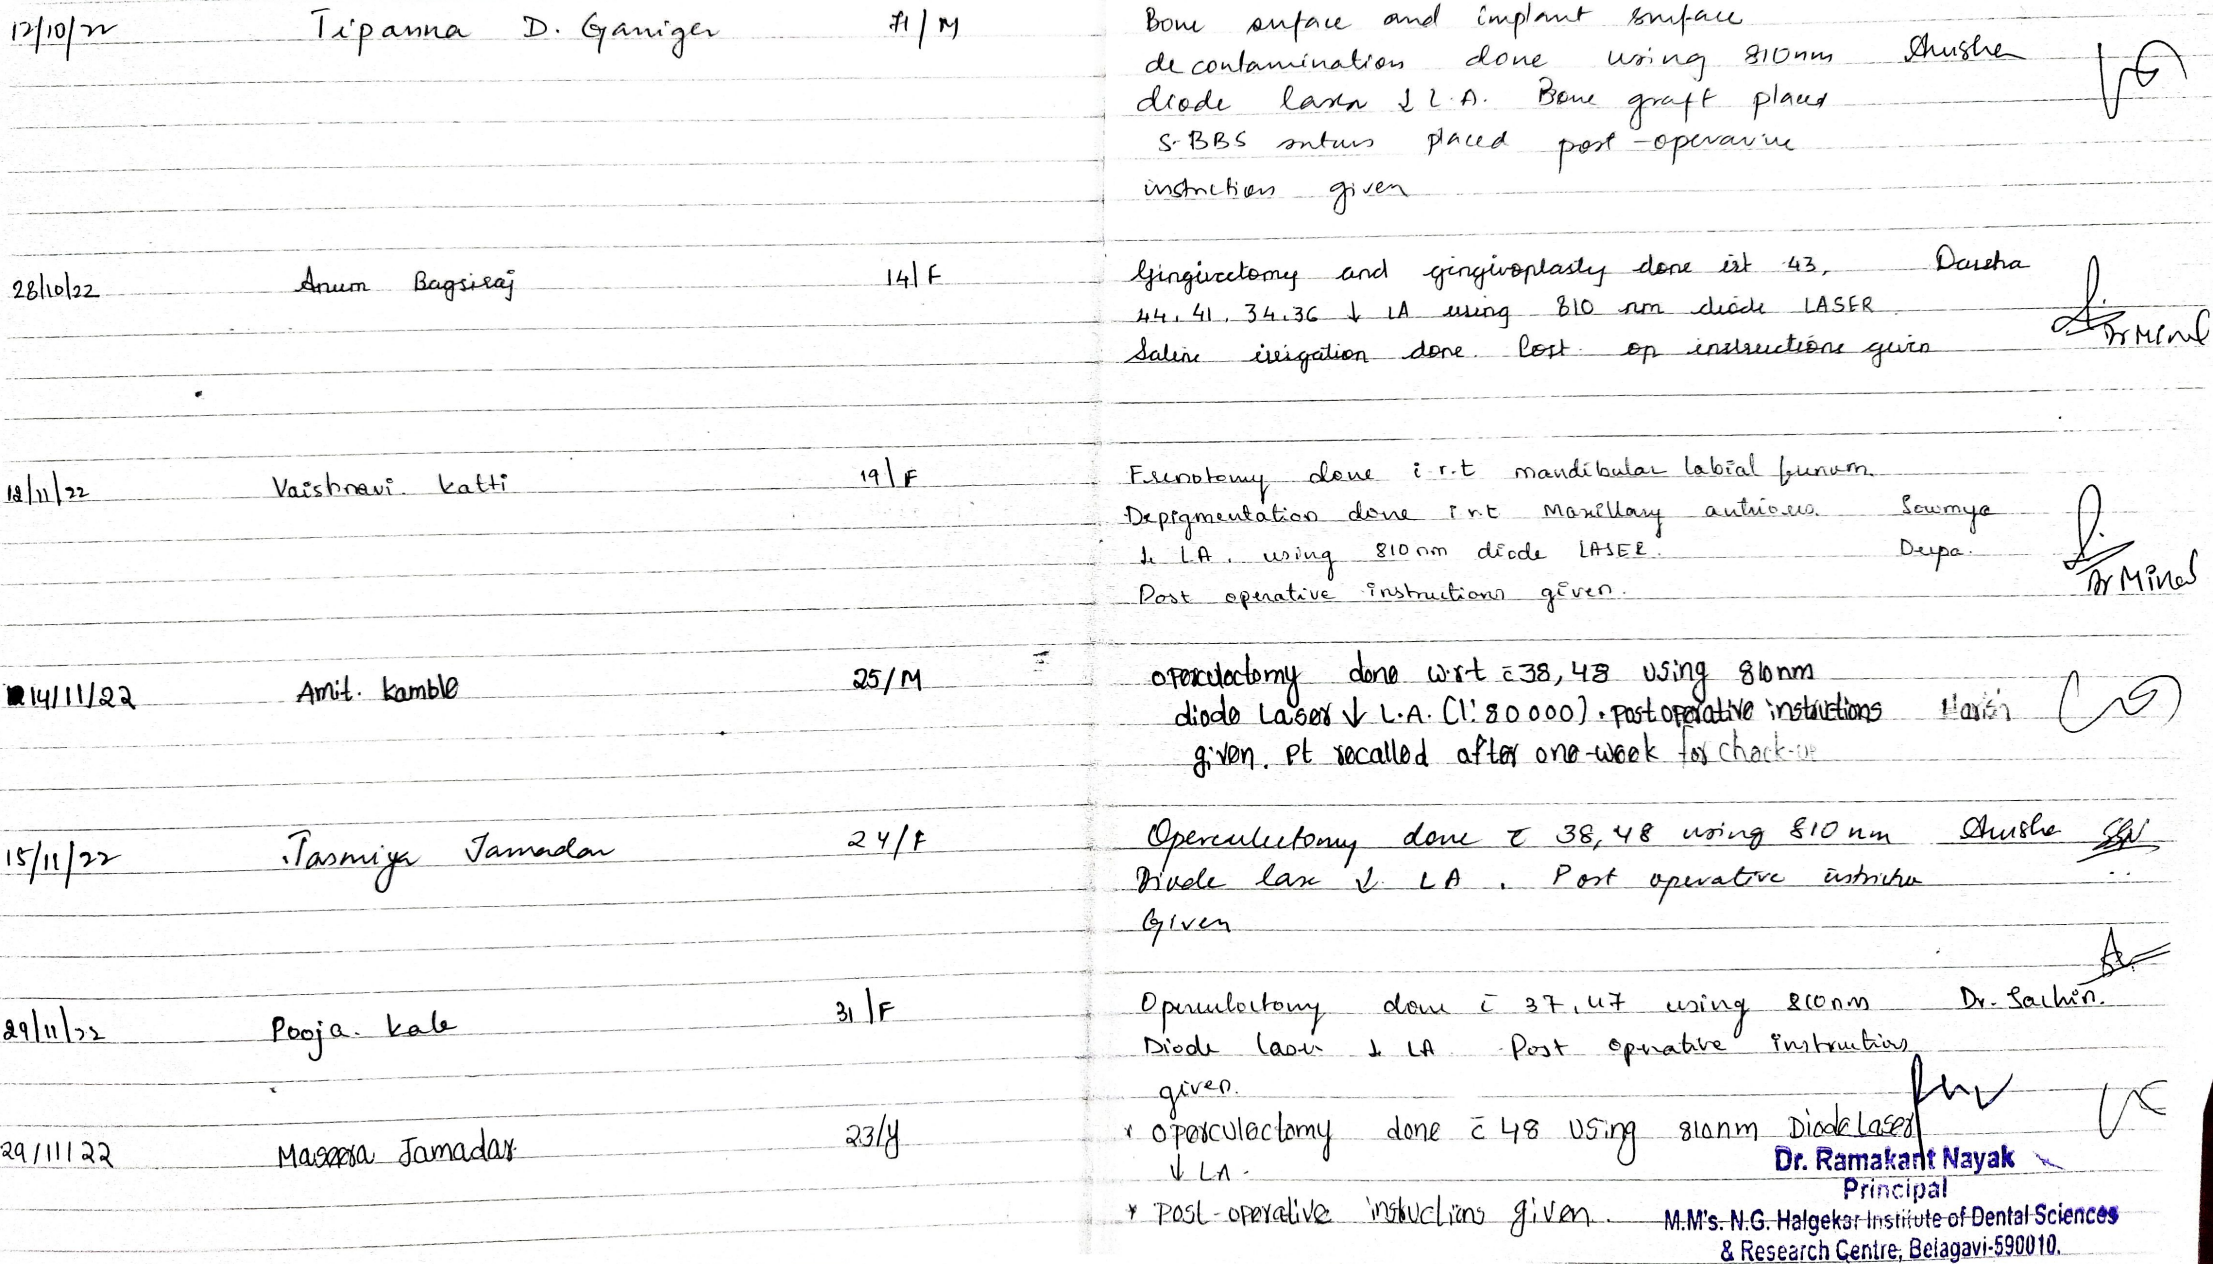 12/10/22 Tipanna D. Ganiger 71/M Bone surface and implant surface
decontamination done using 810nm Anusha
diode laser ↓ L.A. Bone graft placed
5-BBS suturs placed post-operative
instrctions given
28/10/22 Anum Bagsiraj 14/F Gingivectomy and gingivoplasty done irt 43,
44, 41, 34, 36 ↓ LA using 810 nm diode LASER
Saline irrigation done. Post op instructions given
Dr Minal
12/11/22 Vaishnavi. Katti 19/F Frenotomy done i.r.t mandibular labial frenum.
Depigmentation done irt Maxillary anteriors. Sowmya
↓ LA. using 810nm diode LASER. Deepa.
Dr Minal
Post operative instructions given.
14/11/22 Amit. kamble 25/M operculectomy done w.r.t c̄ 38, 48 using 810nm
diode Laser ↓ L.A. (1:80000). post operative instructions
given. pt recalled after one-week for check-up
15/11/22 Tasmiya Jamadar 24/F Operculectomy done c̄ 38, 48 using 810 nm Anusha
Diode ↓ LA. Post operative
Given
29/11/22 Pooja. kale 31/F Operculectomy done c̄ 37, 47 using 810nm Dr. Sachin.
Diode laser ↓ LA Post operative instructions
given.
29/11/22 Jamadar 23/y * operculectomy done c̄ 48 using 810nm Diode Laser
↓ LA.
* post-operative instuctions given.
Dr. Ramakant Nayak
Principal
M.M's. N.G. Halgekar Institute of Dental Sciences
& Research Centre, Belagavi-590010.